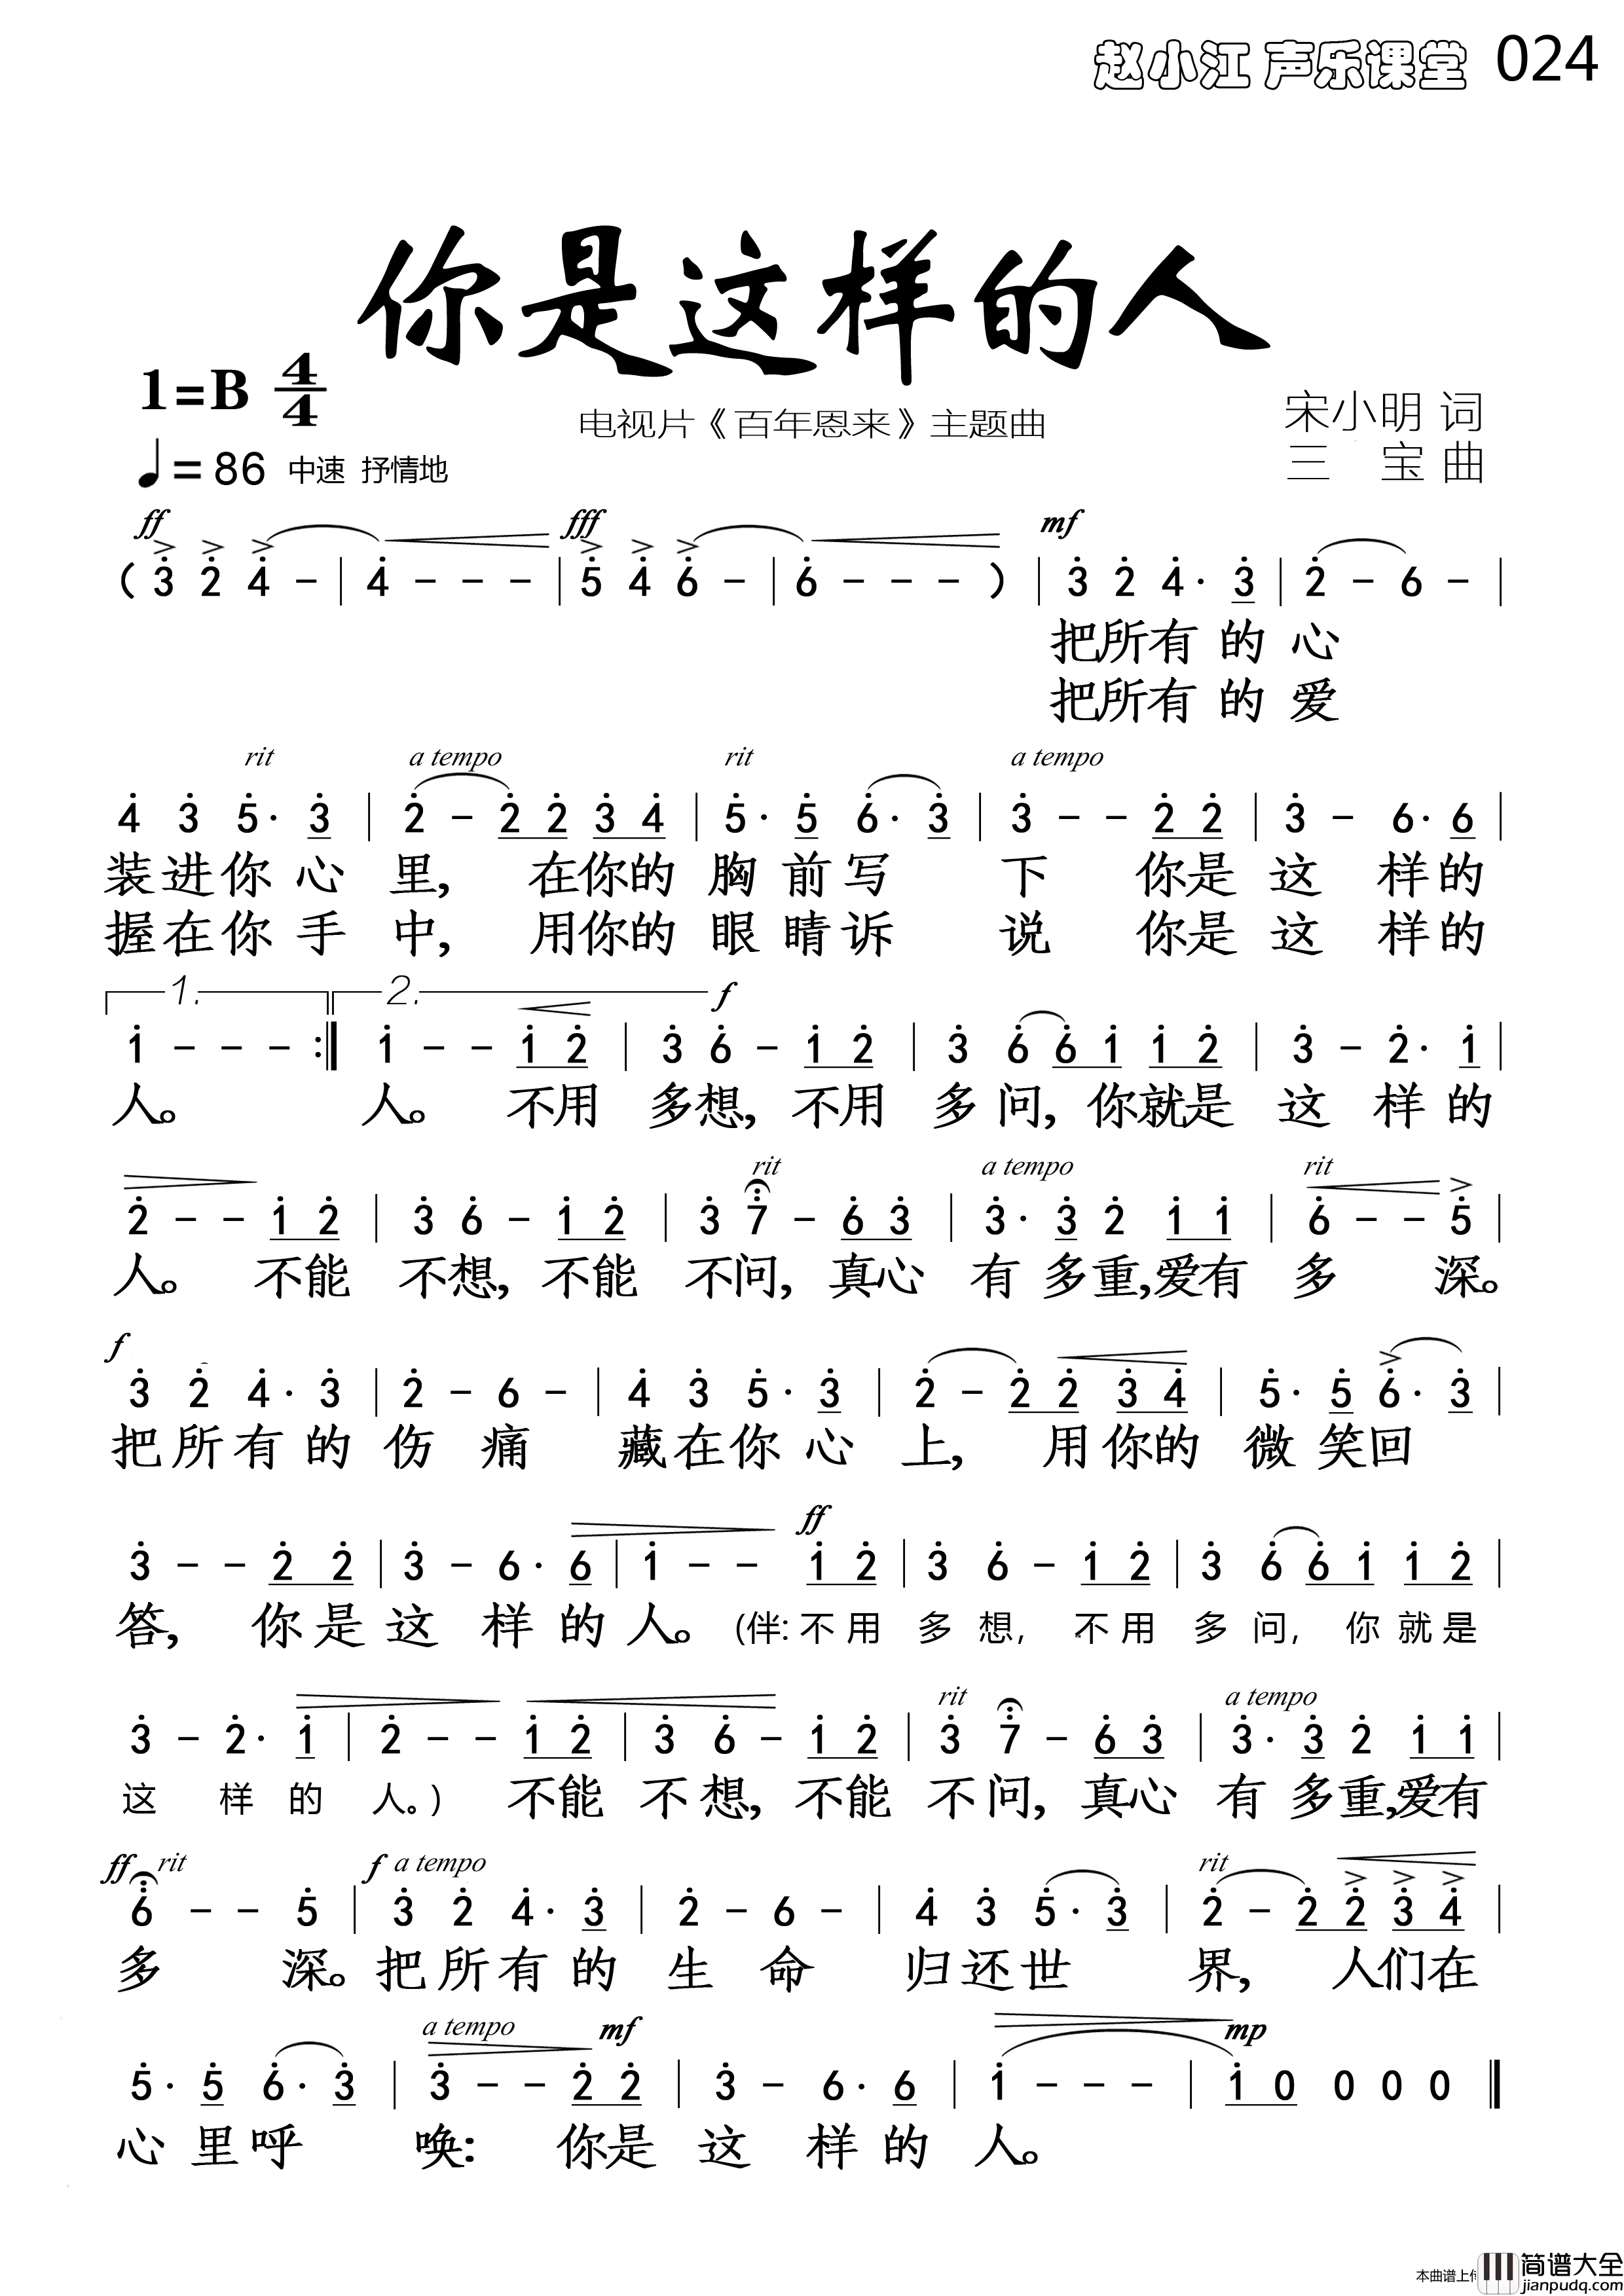 赵小江 声乐课堂 024
你是这样的人
1=B 4/4
电视片《百年恩来》主题曲
宋小明 词
♩= 86 中速 抒情地
三 宝 曲
ff fff mf
( 3 2 4 - | 4 - - - | 5 4 6 - | 6 - - - ) | 3 2 4· 3 | 2 - 6 - |
把所有的心
把所有的爱
rit a tempo rit a tempo
4 3 5· 3 | 2 - 2 2 3 4 | 5· 5 6· 3 | 3 - - 2 2 | 3 - 6· 6 |
装进你心里, 在你的胸前写下 你是这样的
握在你手中, 用你的眼睛诉说 你是这样的
1. 2. f
1 - - - :| 1 - - 1 2 | 3 6 - 1 2 | 3 6 6 1 1 2 | 3 - 2· 1 |
人。 人。 不用多想, 不用多问, 你就是这样的
rit a tempo rit
2 - - 1 2 | 3 6 - 1 2 | 3 7 - 6 3 | 3· 3 2 1 1 | 6 - - 5 |
人。 不能不想, 不能不问, 真心有多重, 爱有多深。
f
3 2 4· 3 | 2 - 6 - | 4 3 5· 3 | 2 - 2 2 3 4 | 5· 5 6· 3 |
把所有的伤痛 藏在你心上, 用你的微笑回
ff
3 - - 2 2 | 3 - 6· 6 | 1 - - 1 2 | 3 6 - 1 2 | 3 6 6 1 1 2 |
答, 你是这样的人。 (伴: 不用多想, 不用多问, 你就是
rit a tempo
3 - 2· 1 | 2 - - 1 2 | 3 6 - 1 2 | 3 7 - 6 3 | 3· 3 2 1 1 |
这样的人。) 不能不想, 不能不问, 真心有多重, 爱有
ff rit f a tempo rit
6 - - 5 | 3 2 4· 3 | 2 - 6 - | 4 3 5· 3 | 2 - 2 2 3 4 |
多深。 把所有的生命 归还世界, 人们在
a tempo mf mp
5· 5 6· 3 | 3 - - 2 2 | 3 - 6· 6 | 1 - - - | 1 0 0 0 0 ‖
心里呼唤: 你是这样的人。
本曲谱上传
简谱大全
jianpudq.com